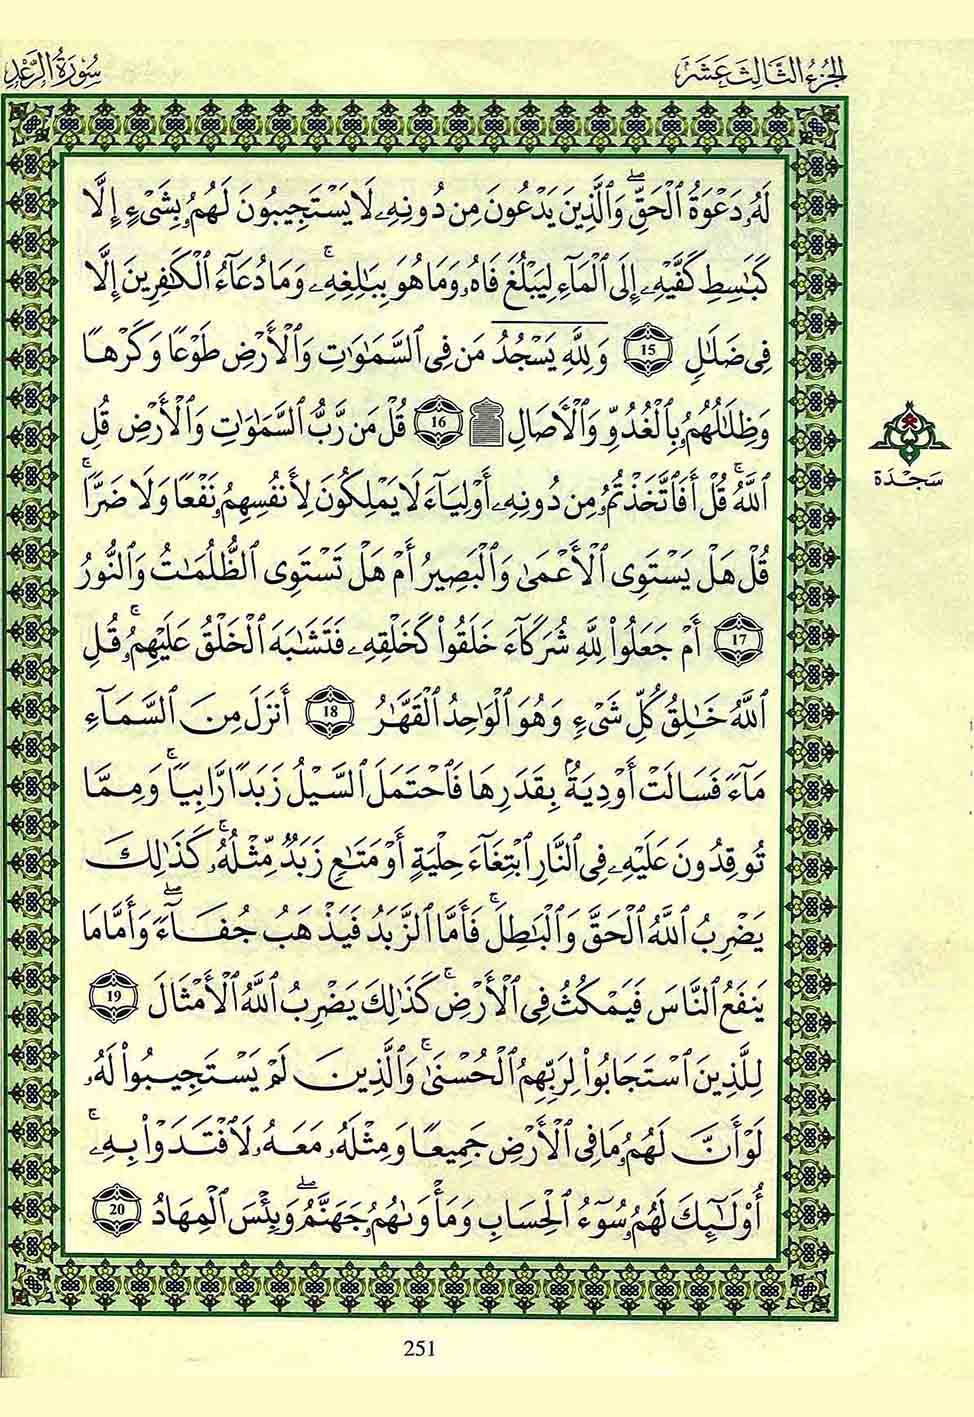 الجزء الثالث عشر
سورة الرعد
لَهُۥ دَعْوَةُ ٱلْحَقِّۖ وَٱلَّذِينَ يَدْعُونَ مِن دُونِهِۦ لَا يَسْتَجِيبُونَ لَهُمُۥ بِشَىْءٍ إِلَّا
كَبَٰسِطِ كَفَّيْهِۦ إِلَى ٱلْمَآءِ لِيَبْلُغَ فَاهُۥ وَمَا هُوَ بِبَٰلِغِهِۦۚ وَمَا دُعَآءُ ٱلْكَٰفِرِينَ إِلَّا
فِى ضَلَٰلٍ 15 وَلِلَّهِ يَسْجُدُ مَن فِى ٱلسَّمَٰوَٰتِ وَٱلْأَرْضِ طَوْعًا وَكَرْهًا
وَظِلَٰلُهُمُۥ بِٱلْغُدُوِّ وَٱلْأٓصَالِ ۩ 16 قُلْ مَن رَّبُّ ٱلسَّمَٰوَٰتِ وَٱلْأَرْضِ قُلِ
ٱللَّهُۚ قُلْ أَفَٱتَّخَذتُّمُۥ مِن دُونِهِۦ أَوْلِيَآءَ لَا يَمْلِكُونَ لِأَنفُسِهِمُۥ نَفْعًا وَلَا ضَرًّاۚ
قُلْ هَلْ يَسْتَوِى ٱلْأَعْمَىٰ وَٱلْبَصِيرُ أَمْ هَلْ تَسْتَوِى ٱلظُّلُمَٰتُ وَٱلنُّورُ
17 أَمْ جَعَلُوا۟ لِلَّهِ شُرَكَآءَ خَلَقُوا۟ كَخَلْقِهِۦ فَتَشَٰبَهَ ٱلْخَلْقُ عَلَيْهِمُۥۚ قُلِ
ٱللَّهُ خَٰلِقُ كُلِّ شَىْءٍ وَهُوَ ٱلْوَٰحِدُ ٱلْقَهَّٰرُ 18 أَنزَلَ مِنَ ٱلسَّمَآءِ
مَآءً فَسَالَتْ أَوْدِيَةٌۢ بِقَدَرِهَا فَٱحْتَمَلَ ٱلسَّيْلُ زَبَدًا رَّابِيًاۚ وَمِمَّا
تُوقِدُونَ عَلَيْهِۦ فِى ٱلنَّارِ ٱبْتِغَآءَ حِلْيَةٍ أَوْ مَتَٰعٍ زَبَدٌ مِّثْلُهُۥۚ كَذَٰلِكَ
يَضْرِبُ ٱللَّهُ ٱلْحَقَّ وَٱلْبَٰطِلَۚ فَأَمَّا ٱلزَّبَدُ فَيَذْهَبُ جُفَآءًۖ وَأَمَّا مَا
يَنفَعُ ٱلنَّاسَ فَيَمْكُثُ فِى ٱلْأَرْضِۚ كَذَٰلِكَ يَضْرِبُ ٱللَّهُ ٱلْأَمْثَالَ 19
لِلَّذِينَ ٱسْتَجَابُوا۟ لِرَبِّهِمُ ٱلْحُسْنَىٰۚ وَٱلَّذِينَ لَمْ يَسْتَجِيبُوا۟ لَهُۥ
لَوْ أَنَّ لَهُمُۥ مَا فِى ٱلْأَرْضِ جَمِيعًا وَمِثْلَهُۥ مَعَهُۥ لَٱفْتَدَوْا۟ بِهِۦۚ
أُو۟لَٰٓئِكَ لَهُمُۥ سُوٓءُ ٱلْحِسَابِ وَمَأْوَىٰهُمُۥ جَهَنَّمُۖ وَبِئْسَ ٱلْمِهَادُ 20
سجدة
251